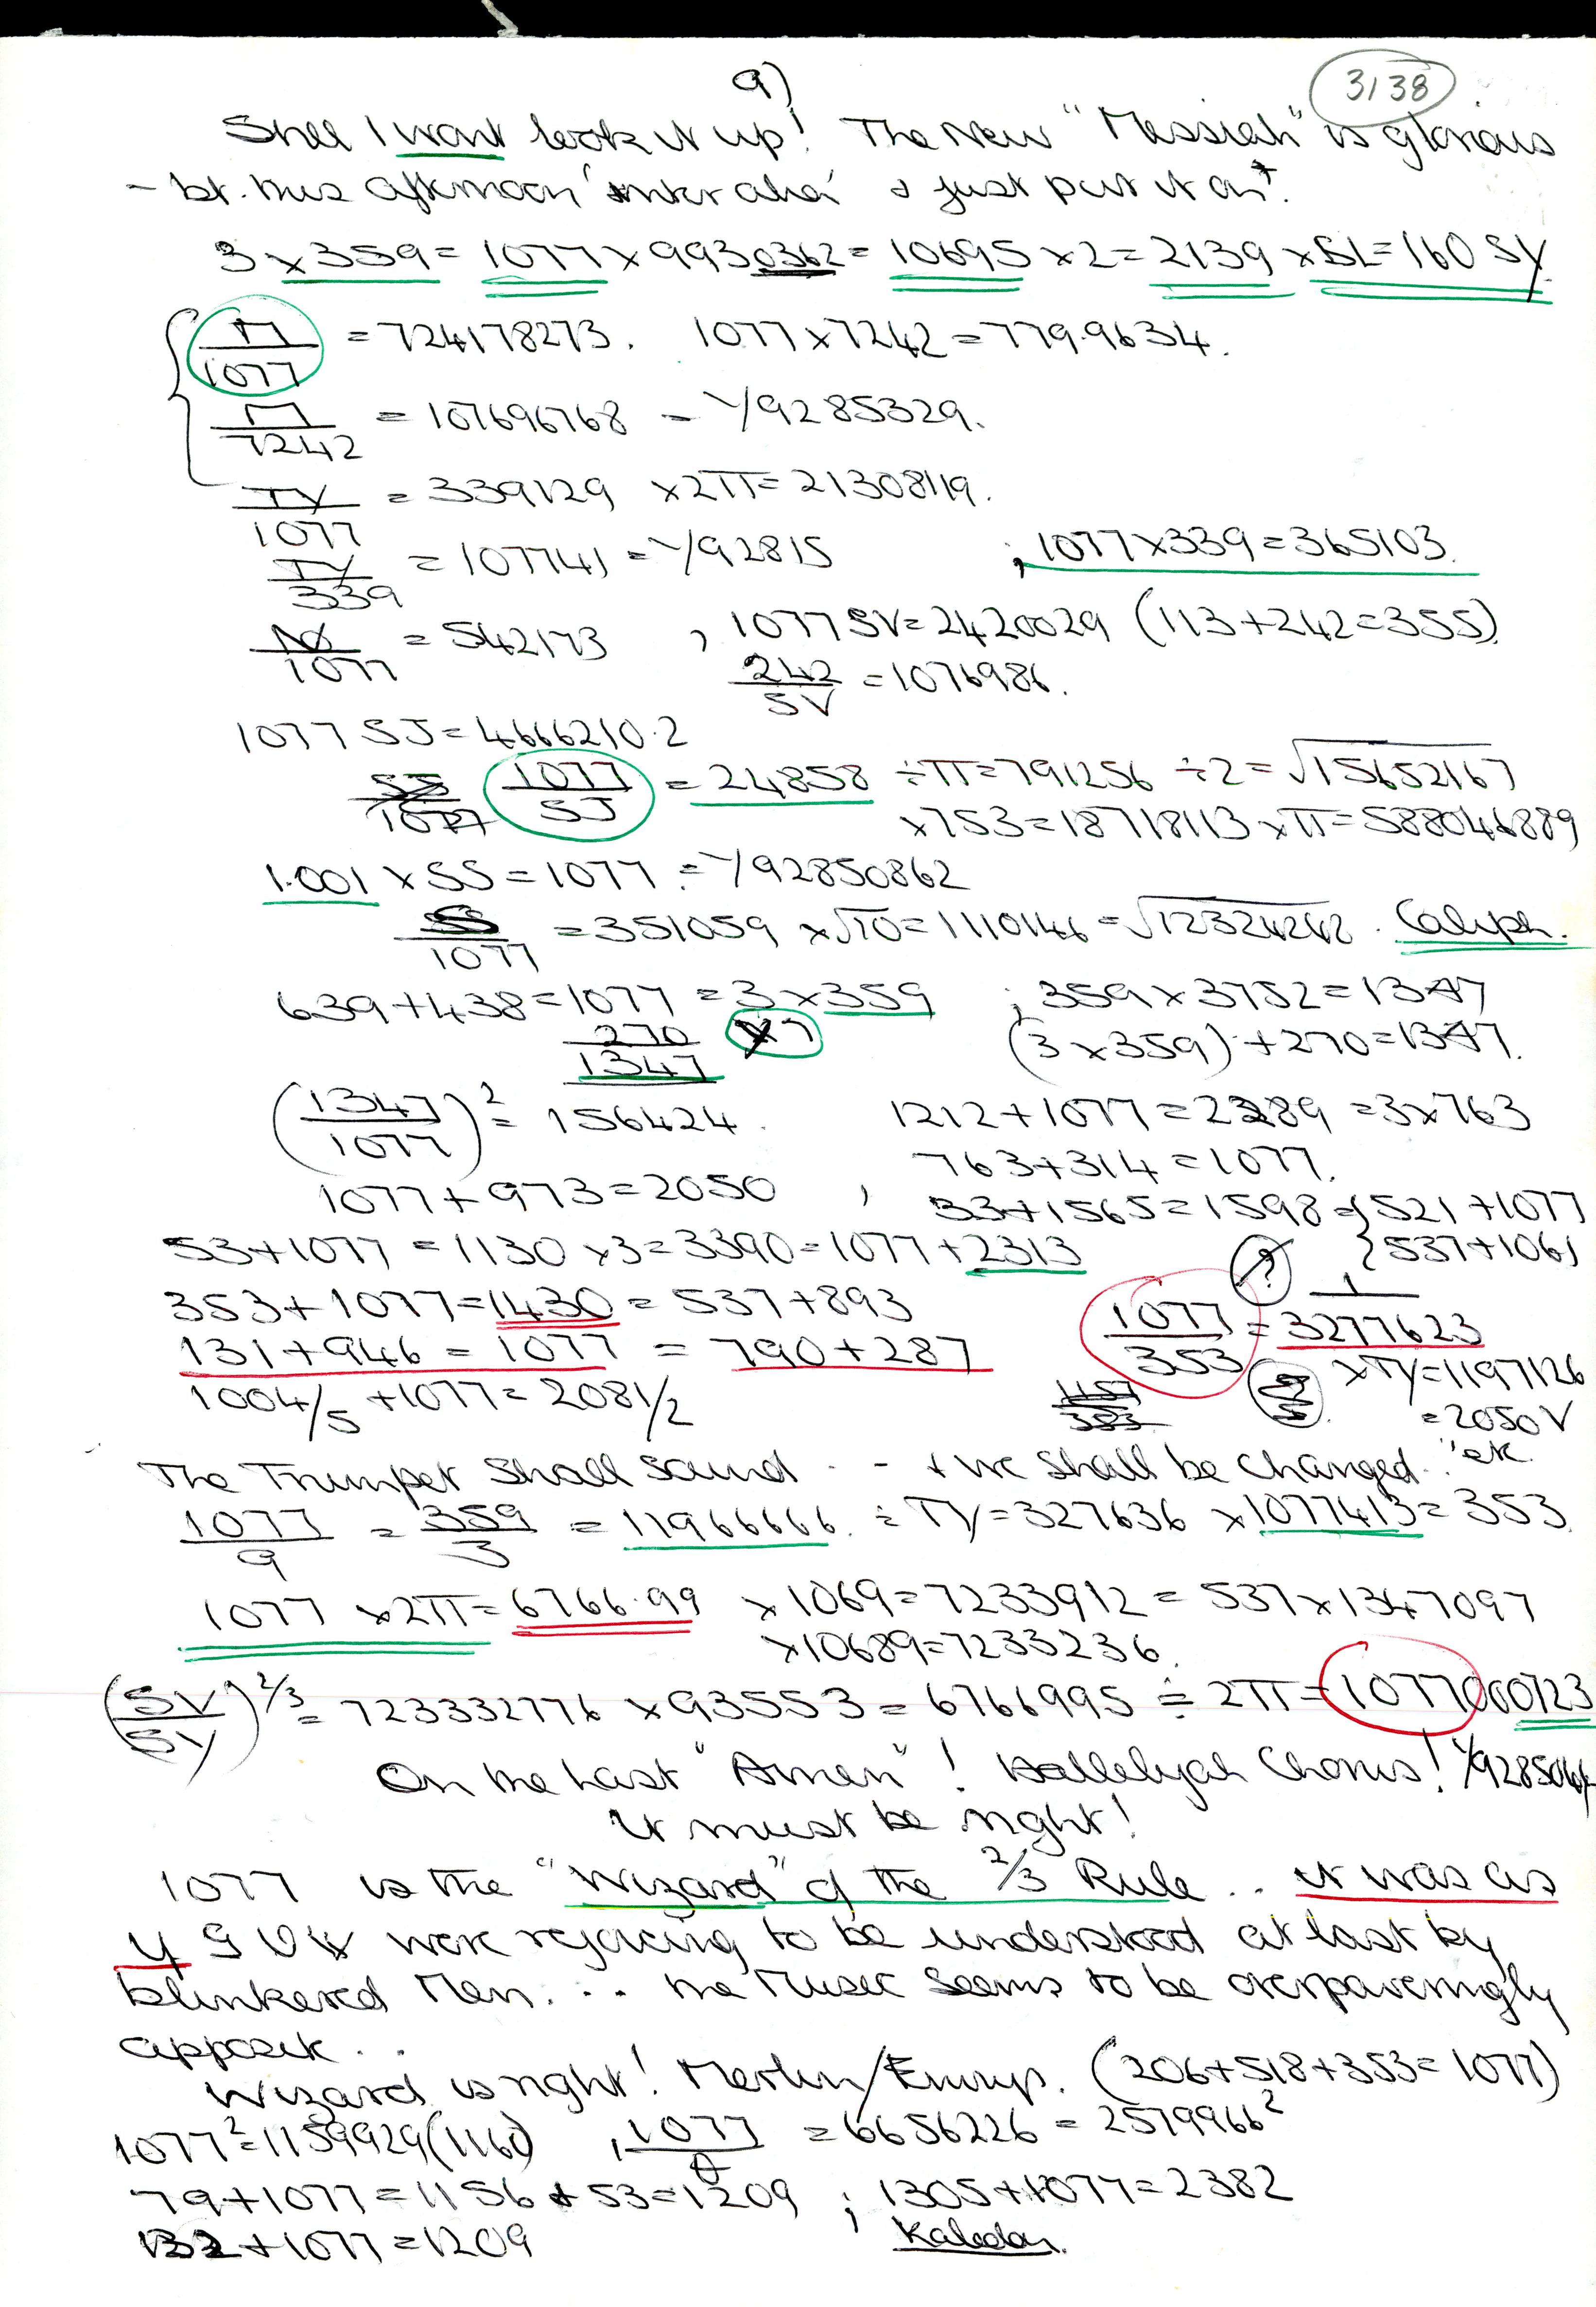 9)
3138
Shee I wont look it up! The New "Messiah" is glorious
- bt. this afternoon 'inter alia' & just put it on!
3 x 359 = 1077 x 9930362 = 10695 x 2 = 2139 x SL = 160 SY
Π/1077 = 724178273. 1077 x 7242 = 779.9634.
Π/7242 = 107696768 - 1/9285329.
TY/1077 = 339129 x 2Π = 21308119.
TY/339 = 107741 = 1/92815 ; 1077 x 339 = 365103.
/1077 = 542173 , 1077 SV = 2420029 (113+242=355)
242/SV = 1076986.
1077 SJ = 4666210.2
1077/SJ = 24858 ÷ Π = 791256 ÷ 2 = √15652167
x 753 = 18718113 x Π = 588046889
1.001 x SS = 1077 = 1/92850862
SS/1077 = 351059 x √10 = 1110146 = √12324242. Caliph.
639 + 438 = 1077 = 3 x 359 ; 359 x 3752 = 1347
270 x 7 (3 x 359) + 270 = 1347.
1347
(1347/1077)² = 156424. 1212 + 1077 = 2289 = 3 x 763
763 + 314 = 1077.
1077 + 973 = 2050 , 33 + 1565 = 1598 = { 521 + 1077
53 + 1077 = 1130 x 3 = 3390 = 1077 + 2313 { 537 + 1061
353 + 1077 = 1430 = 537 + 893 ? 1077/353 = 1/3277623
131 + 946 = 1077 = 790 + 287 x TY = 1197126
1004/5 + 1077 = 2081/2 = 2050 V
The Trumpet Shall Sound - - + we shall be changed.." etc.
1077/9 = 359/3 = 11966666. ÷ TY = 327636 x 1077413 = 353.
1077 x 2Π = 6766.99 x 1069 = 7233912 = 537 x 1347097
x 10689 = 7233236.
(SV/SY)^2/3 = 723332776 x 93553 = 6766995 ÷ 2Π = 1077000723
On the Last "Amen"! Hallelujah Chorus! 1/9285064
It must be right!
1077 is the "Wizard" of the 2/3 Rule .. it was as
if were rejoicing to be understood at last by
blinkered Men. .. the Music seems to be overpoweringly
apposite. .
Wizard is right! Merlin/Emrys. (206+518+353=1077)
1077² = 1159929 (1160) , 1077/ = 6656226 = 2579966²
79 + 1077 = 1156 + 53 = 1209 ; 1305 + 1077 = 2382
132 + 1077 = 1209 Kaledon.